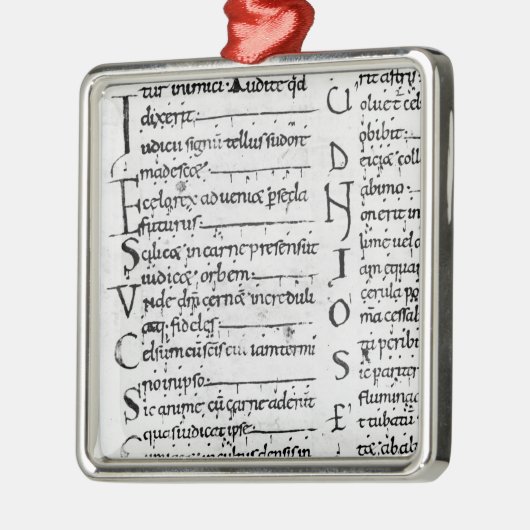 tur inimici Audite qd
dixerit
Iudicii signū tellus sudore
madescæ
E celo rex adveniæ p secla
futurus
Scilicæ in carne presens ut
iudicæ orbem
Vnde dm̄ cernent increduli
atq; fideles
Celsum cū scīs iam termi
no in ipso
Sic anime cū carne aderit
quas iudicat ipse
rit astris
Uoluet cel
obibit
Deiciæ coll
ab imo
Non erit in
lime uel a
Iam equan
cerula po
Omā cessab
tu peribi
Sic pariter
flumina
Et tubatū
tæ. ab ab